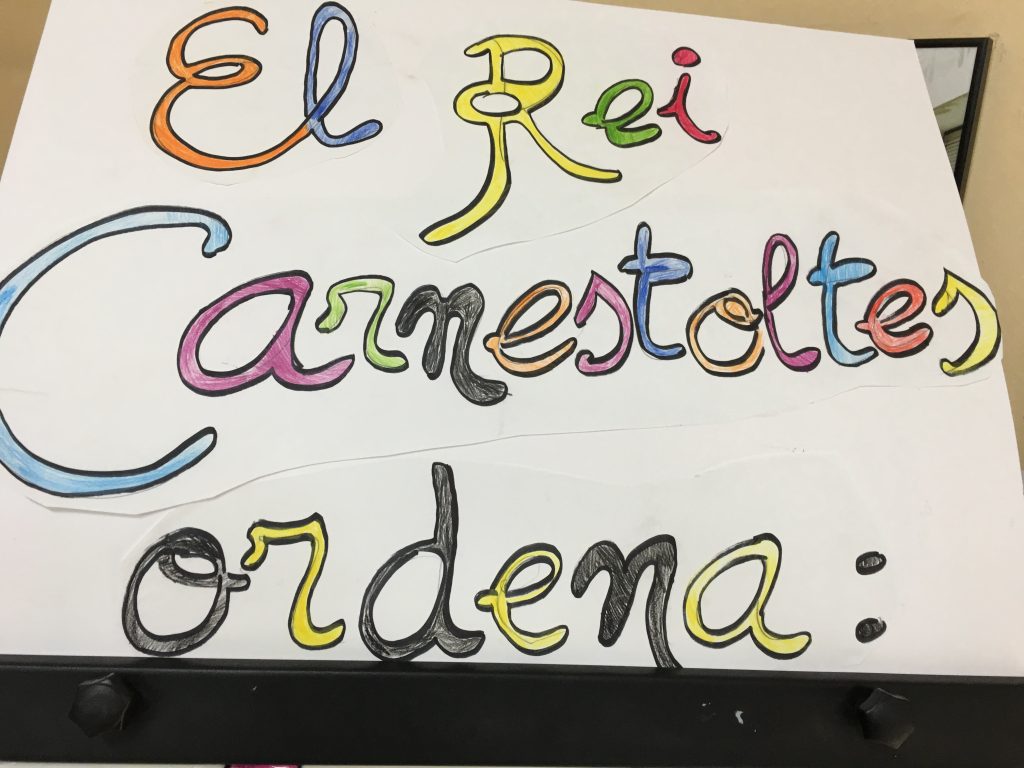 El Rei
Carnestoltes
ordena: